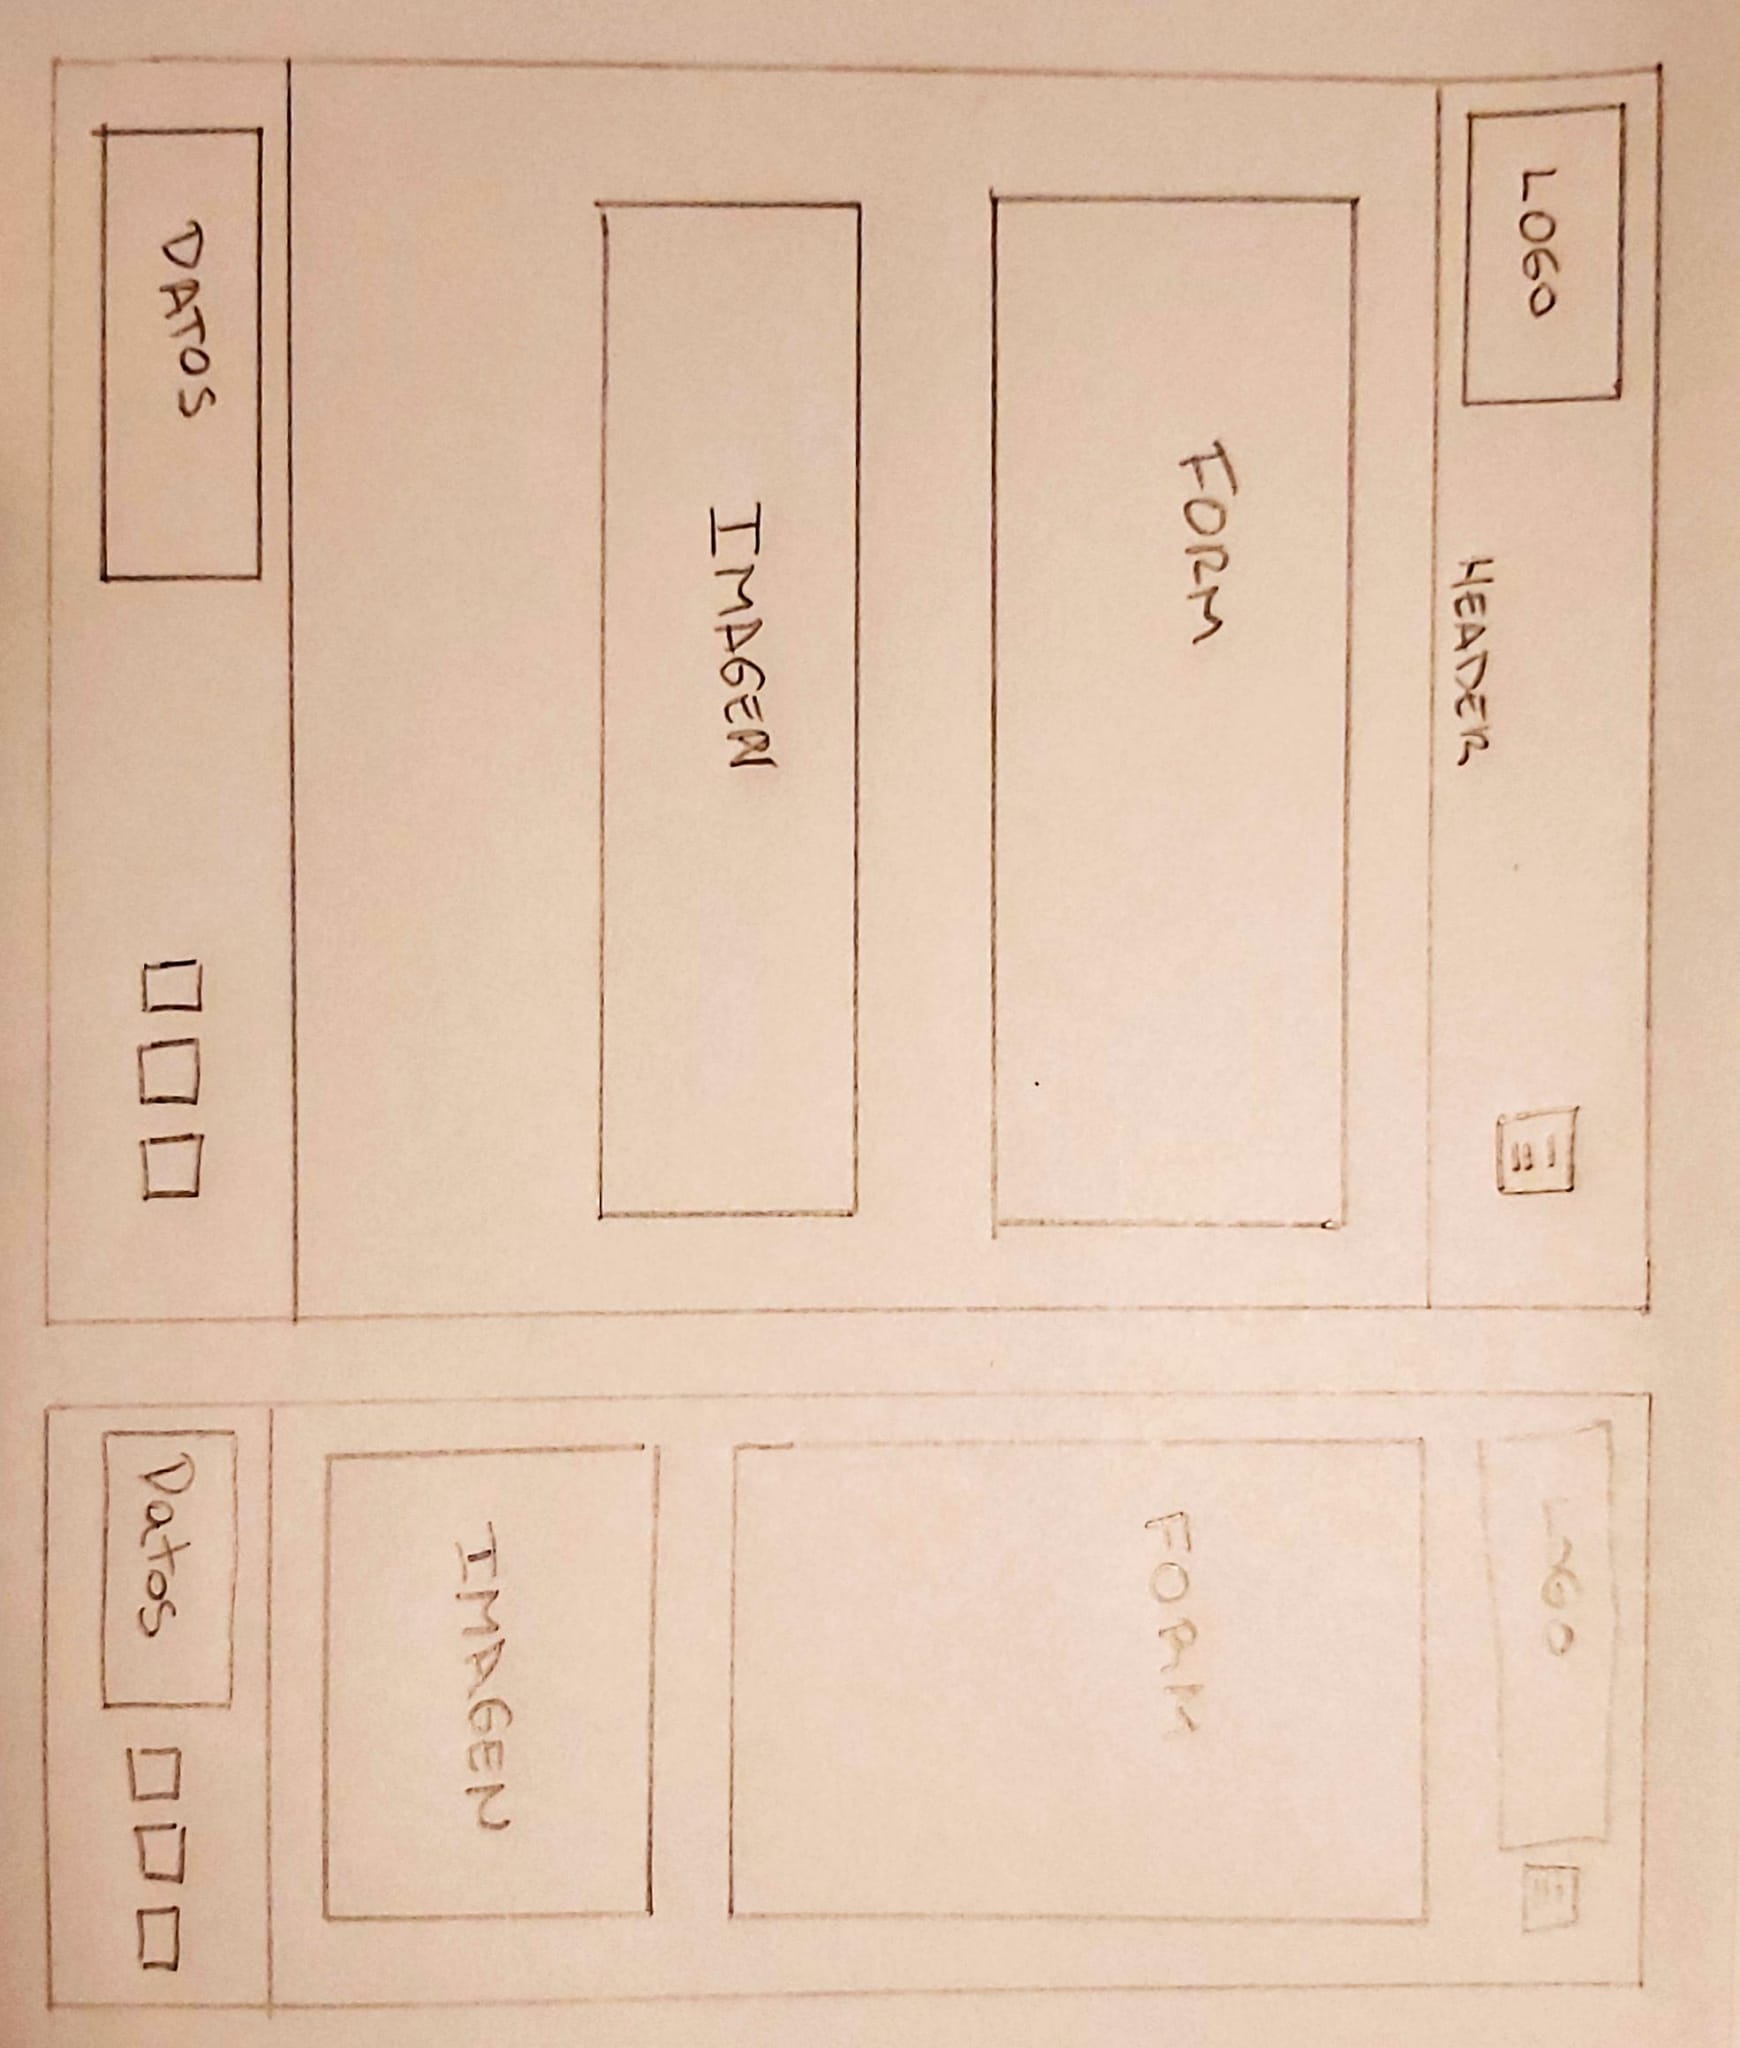 LOGO
HEADER
FORM
IMAGEN
DATOS
LOGO
FORM
IMAGEN
Datos